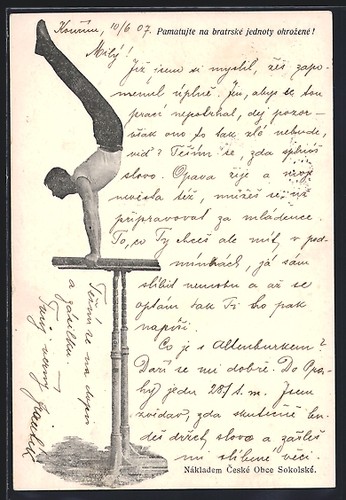 Kouřim, 10/6 07. Pamatujte na bratrské jednoty ohrožené!
Milý!
Již jsem si myslil, žes zapo-
menul úplně. Jen, abys se tou
prací nepotrhal, dej pozor —
však ono to tak zlé nebude,
viď? Těším se, zda splníš
slovo. Opava žije a
nevěsta též, můžeš se již
připravovat za mládence.
To, co Ty chceš ale mít, v pod-
mínkách, já sám
slíbit nemohu a až se
optám tak Ti ho pak
napíši.
Co je s Altenburkem?
Daří se mi dobře. Do Opa-
vy jedu 28/t.m. Jsem
zvědav, zda skutečně bu-
deš držet slovo a zašleš
mi slíbené věci.
Těším se na dopis
a zásilku. —
Tvůj věrný
Nákladem České Obce Sokolské.